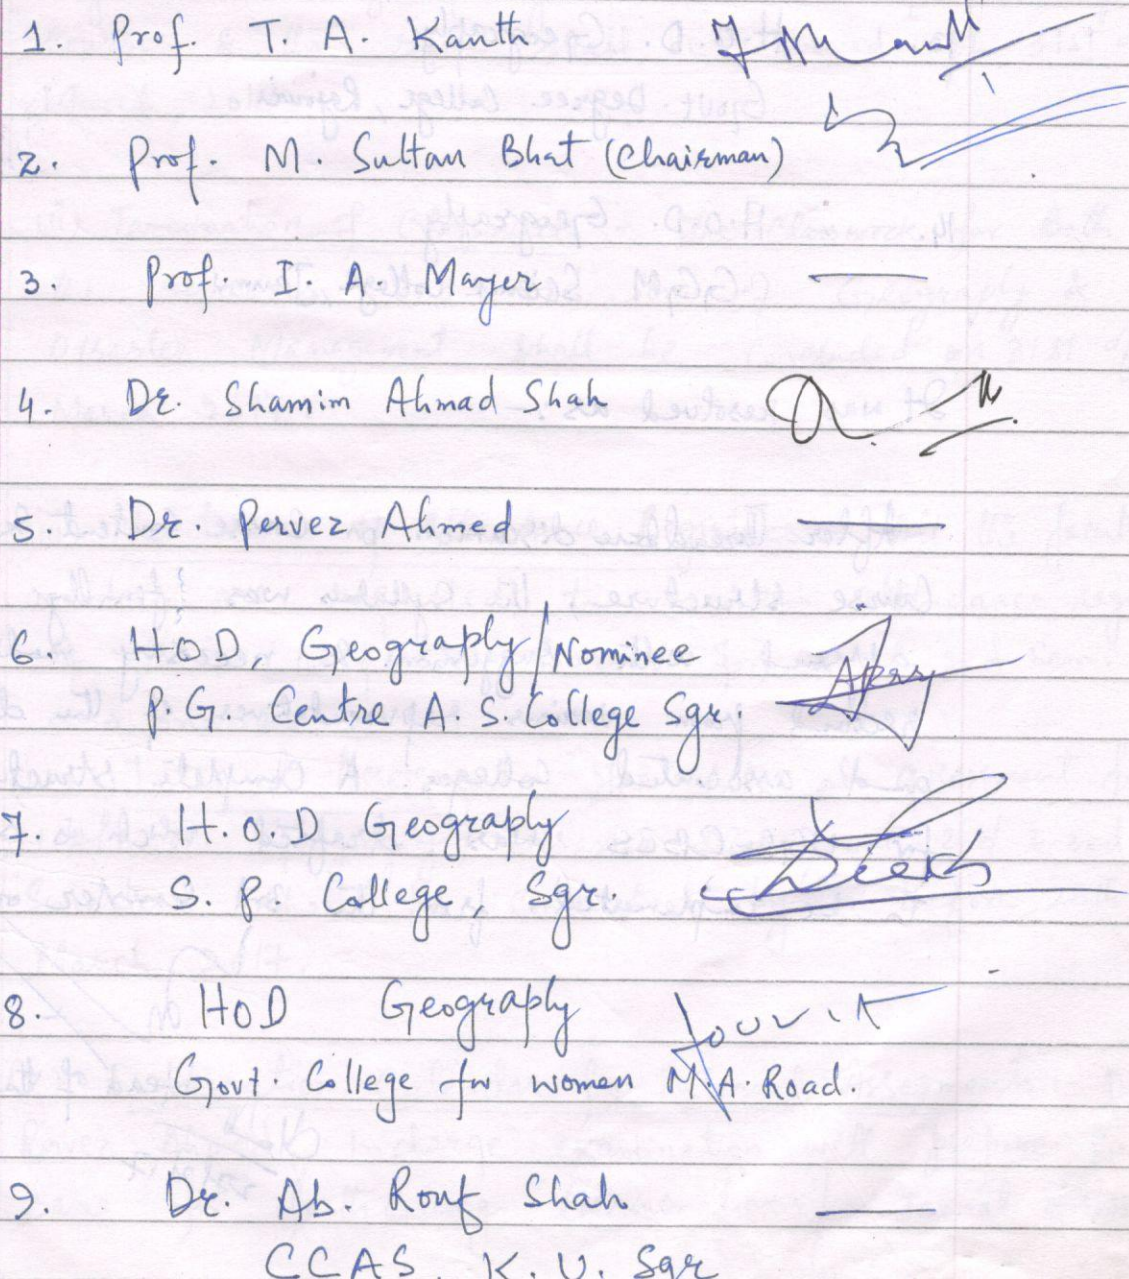 1. Prof. T. A. Kanth
2. Prof. M. Sultan Bhat (Chairman)
3. Prof. I. A. Mayer
4. Dr. Shamim Ahmad Shah
5. Dr. Pervez Ahmed
6. H.O.D, Geography/Nominee
P.G. Centre A. S. College Sgr.
7. H.O.D Geography
S. P. College, Sgr.
8. HOD Geography
Govt. College for women M.A. Road.
9. Dr. Ab. Rouf Shah
CCAS, K. U. Sgr